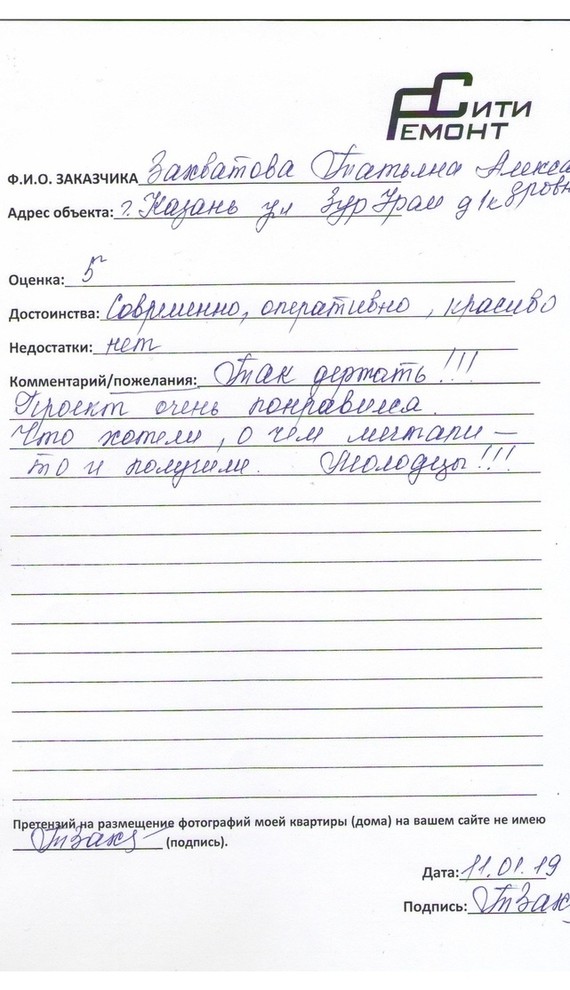 СИТИ
РЕМОНТ
Ф.И.О. ЗАКАЗЧИКА Захватова Татьяна Алекса
дровн
Адрес объекта: г. Казань ул Зур Урам д1к
Оценка: 5
Достоинства: Современно, оперативно, красиво
Недостатки: нет
Комментарий/пожелания: Так держать!!!
Проект очень понравился.
Что хотели, о чем мечтали –
то и получили. Молодцы!!!
Претензий на размещение фотографий моей квартиры (дома) на вашем сайте не имею
ТЗах (подпись).
Дата: 11.01.19
Подпись: ТЗах